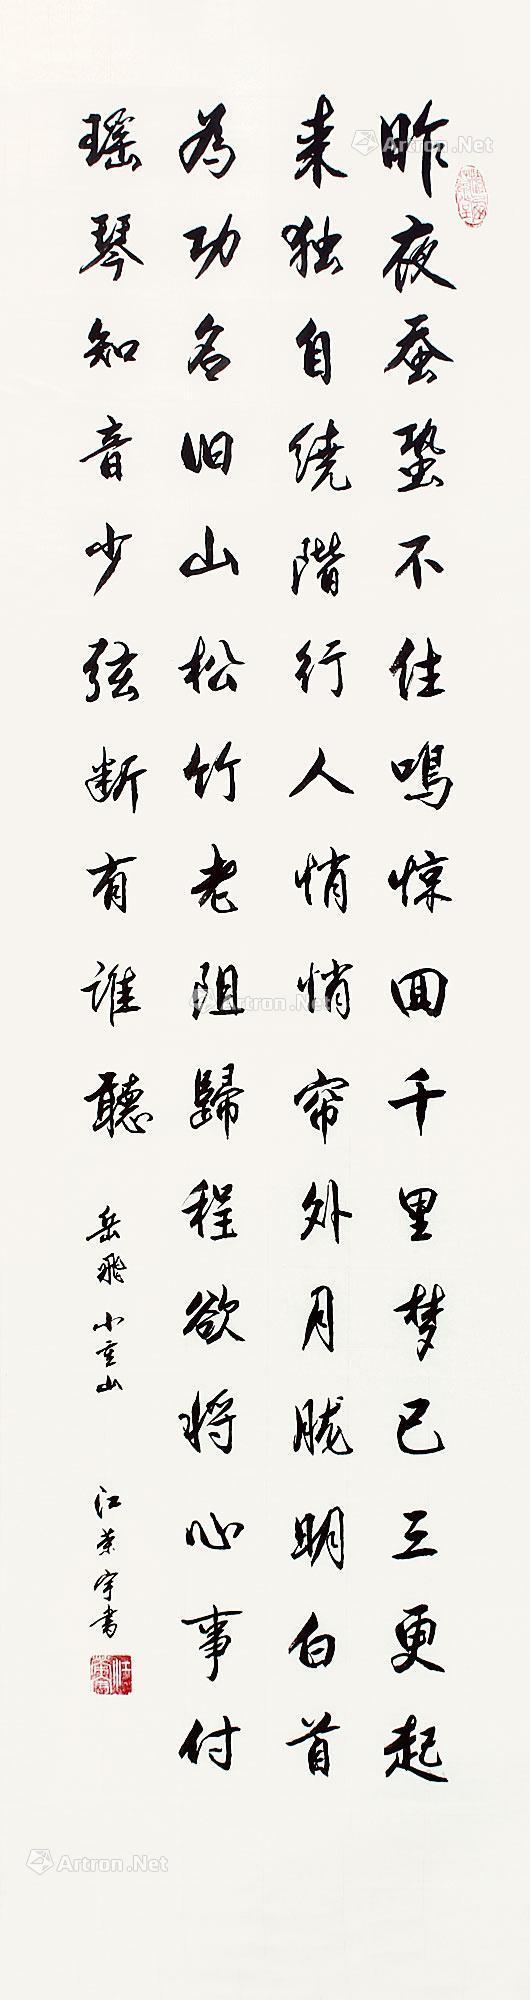 昨夜蚕蛩不住鸣惊回千里梦已三更起
来独自绕階行人悄悄帘外月胧明白首
为功名旧山松竹老阻歸程欲将心事付
瑶琴知音少弦断有谁聽
岳飞小重山
江荣宇书
Artron.Net
Artron.Net
Artron.Net